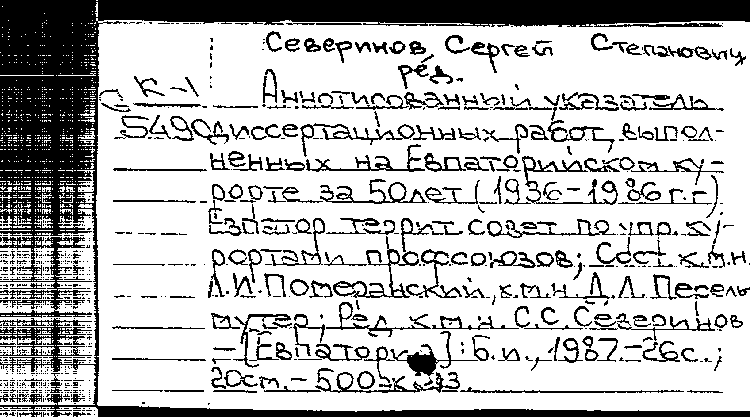 Северинов Сергей Степанович
ред.
К-1 Аннотированный указатель
5490 диссертационных работ, выпол-
ненных на Евпаторийском ку-
рорте за 50 лет (1936-1986 г.г.)
Евпатор. террит. совет по упр. ку-
рортами профсоюзов; Сост. к.м.н.
Л.И. Померанский, к.м.н. Д.Л. Песель-
мутер; Ред. к.м.н. С.С. Северинов
– [Евпатория]: Б.и., 1987.-26с.;
20см.-500экз.